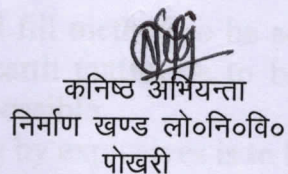 कनिष्ठ अभियन्ता
निर्माण खण्ड लो०नि०वि०
पोखरी